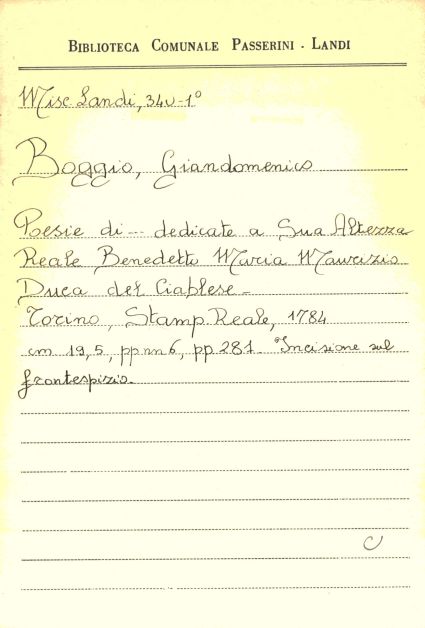 BIBLIOTECA COMUNALE PASSERINI - LANDI
Misc Landi, 34v-1°
Boggio, Giandomenico
Poesie di -- dedicate a Sua Altezza
Reale Benedetto Maria Maurizio
Duca del Ciablese -
Torino, Stamp. Reale, 1784
cm 19,5, pp nn 6, pp 281. Incisione sul
frontespizio.
C